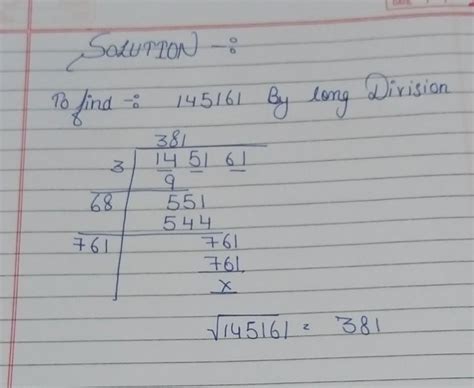 SOLUTION -:
To find -: 145161 By long Division
381
3 14 51 61
9
68 551
544
761 761
761
x
√145161 = 381